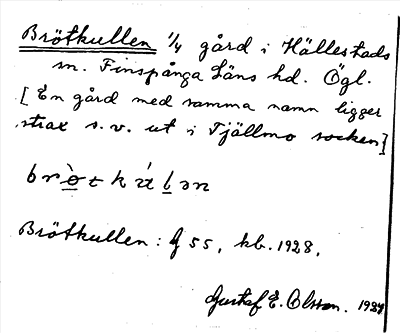 Brötkullen 1/4 gård i Hällestads
sn. Finspånga Läns hd. Ögl.
[En gård med samma namn ligger
strax s.v. ut i Tjällmo socken]
brö̀tkúlən
Brötkullen: G 55, kb. 1928.
Gustaf E. Olsson. 1934